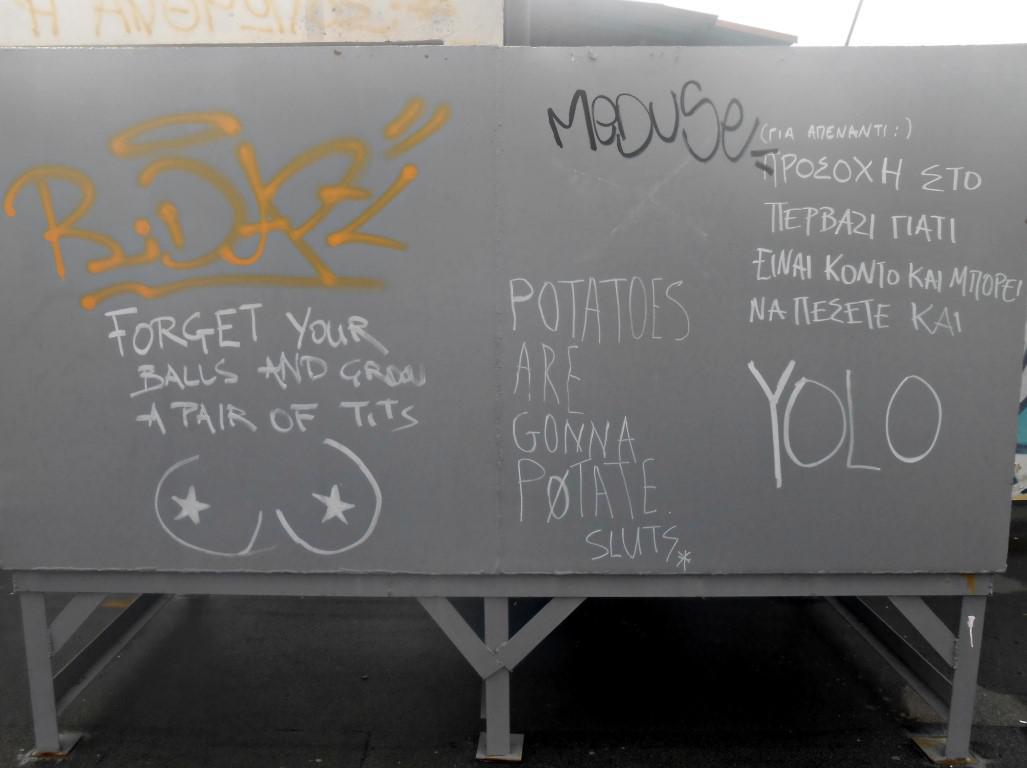 FORGET YOUR
BALLS AND GROW
A PAIR OF TITS
MeDUSe
POTATOES
ARE
GONNA
PØTATE.
SLUTS*
(ΓΙΑ ΑΠΕΝΑΝΤΙ:)
ΠΡΟΣΟΧΗ ΣΤΟ
ΠΕΡΒΑΖΙ ΓΙΑΤΙ
ΕΙΝΑΙ ΚΟΝΤΟ ΚΑΙ ΜΠΟΡΕΙ
ΝΑ ΠΕΣΕΤΕ ΚΑΙ
YOLO